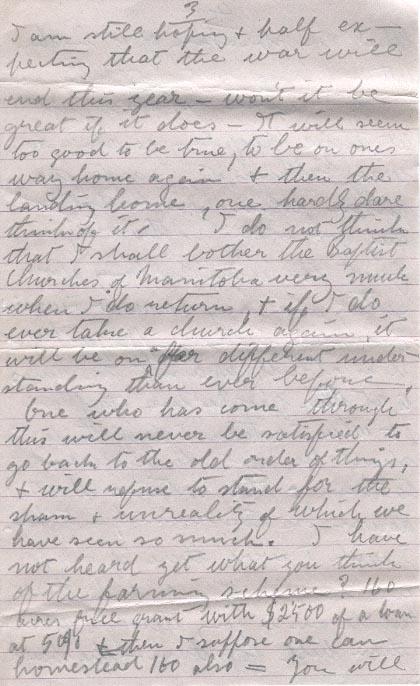 3
I am still hoping & half ex-
pecting that the war will
end this year - won't it be
great if it does - It will seem
too good to be true, to be on ones
way home again & then the
landing home, one hardly dare
think of it. I do not think
that I shall bother the Baptist
Churches of Manitoba very much
when I do return, & if I do
ever take a church again, it
will be on far different under-
standing than ever before.
One who has come through
this will never be satisfied to
go back to the old order of things,
& will refuse to stand for the
sham & unreality of which we
have seen so much. I have
not heard yet what you think
of the farming scheme? 160
acres free grant with $2500 of a loan
at 5% & then I suppose one can
homestead 160 also = You will